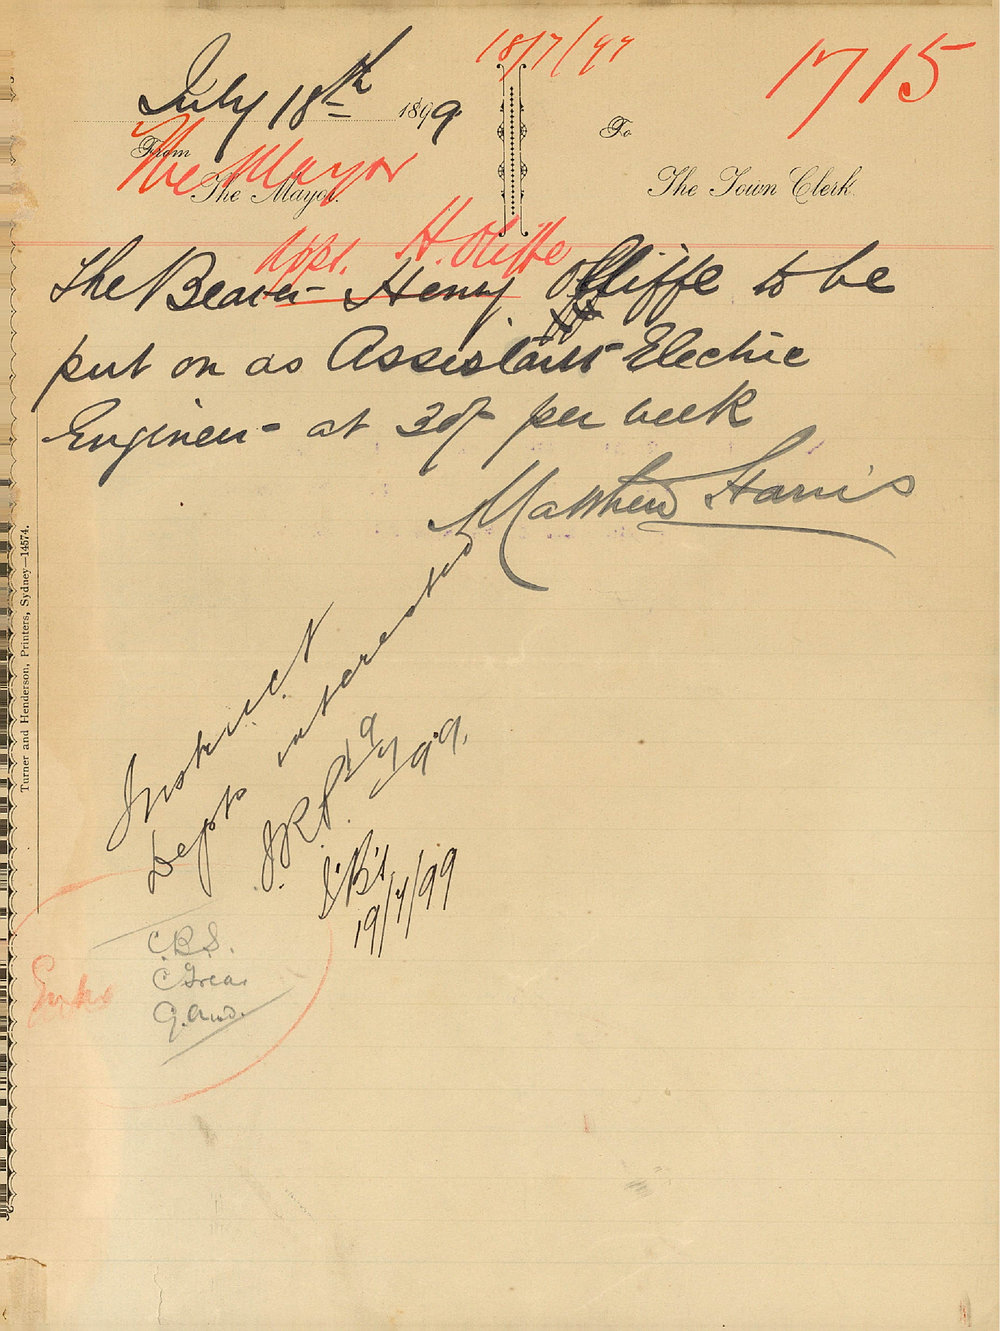 18/7/99
1715
July 18th 1899
From
The Mayor
The Mayor.
To
The Town Clerk
Appt. H. Oliffe
The Bearer Henry Olliffe to be
put on as Assistant Electric
Engineer at 30/- per week
Matthew Harris
Instruct
Depts interested
J.R.P. 19/7/99.
19/7/99
C.R.S.
Turner and Henderson, Printers, Sydney—14574.